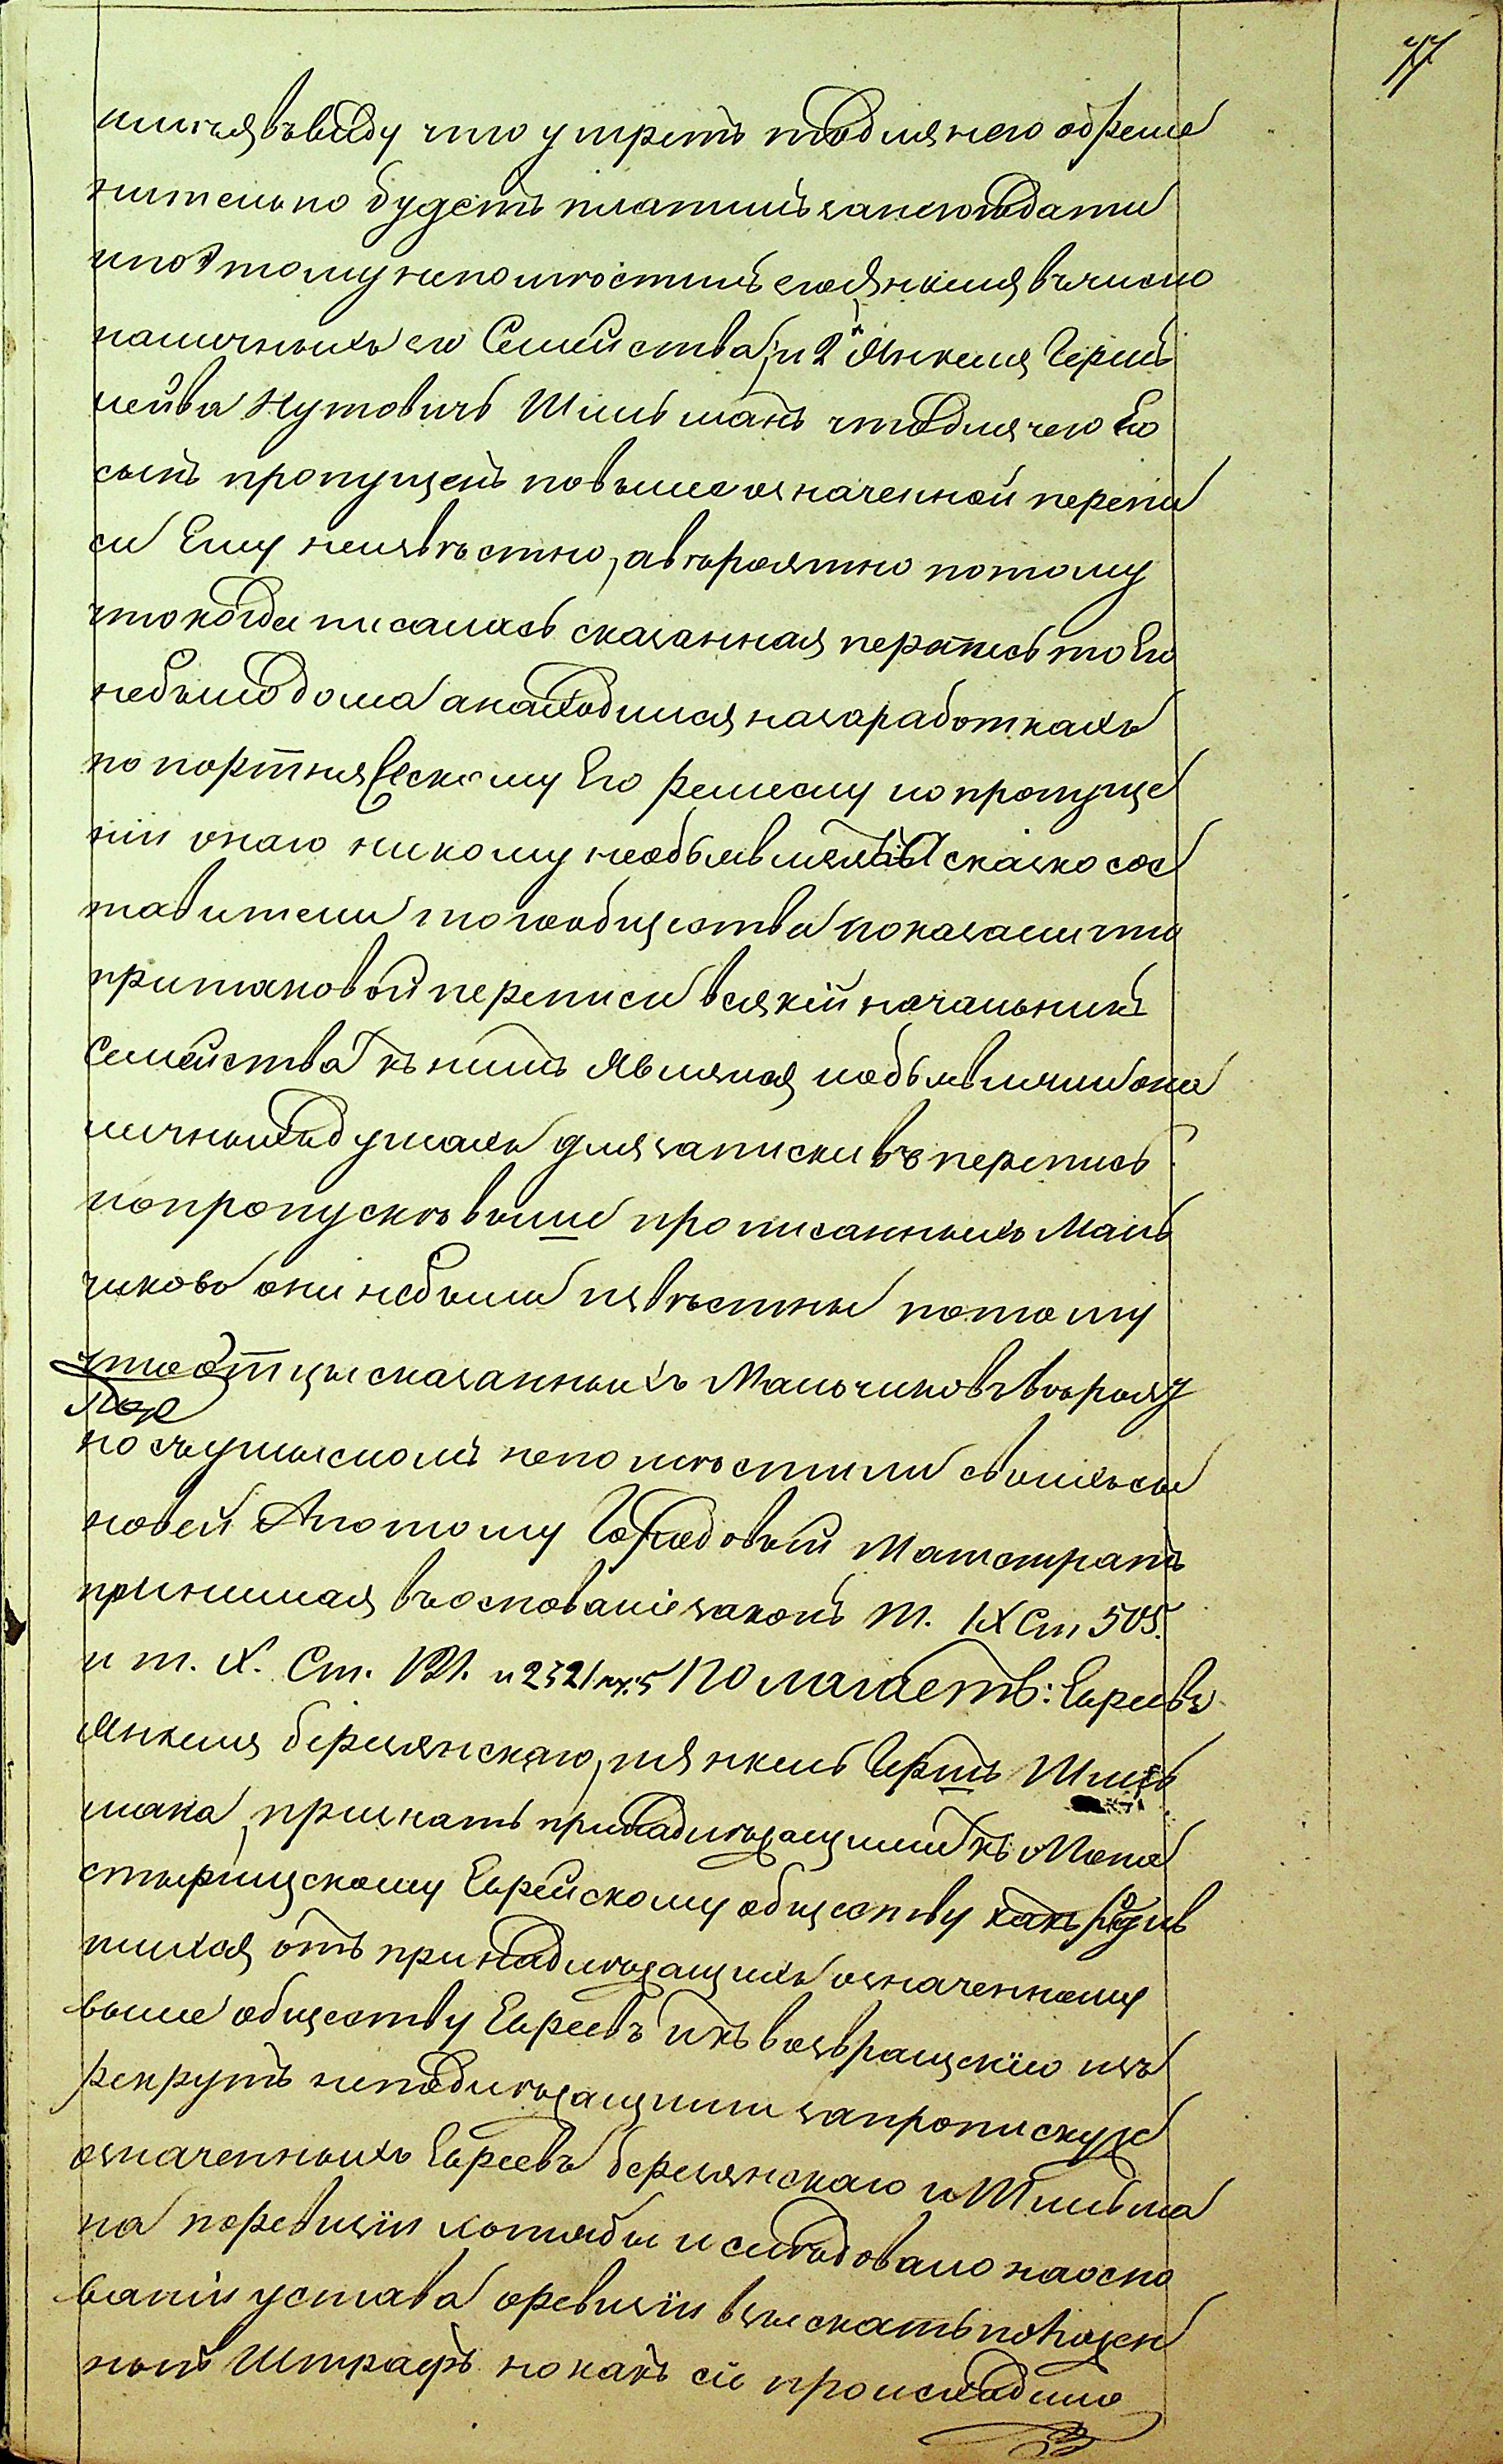 77
имея въ виду что умретъ то для него обреме
нительно будетъ платить за него подати
и потому непомѣстилъ его Янкеля въ число
наличныхъ его Семейства, и 2й Янкеля Герш
лейва Нутовичъ Шильманъ что для чего Его
сынъ пропущенъ по вышеозначенной перепи
си Ему неизвѣстно, а вѣроятно потому
что когда писалась сказанная перепись то Его
небыло дома а находился на заработкахъ
по портняческому Его ремеслу и о пропуще
ніи онаго никому необъявлялъ а сказкосос
тавители того общества показали что
при таковой переписи всякій начальникъ
Семейства къ нимъ являлся и объявляли о на
личныхъ душахъ для записки въ перепись
но о пропускѣ выше прописанныхъ Маль
чиковъ они небыли извѣстны потому
что отцы сказанныхъ Мальчиковъ вѣроят
но съ умысломъ непомѣстили своихъ сы
новей А потому Городовый Магистратъ
принимая въ основаніе законъ т. IX Ст 505.
и т. X. Ст. и 2321 Полагаетъ: Евреевъ
Янкеля Березянскаго, и Янкель Гершъ Шиль
мана, признать принадлежащими къ Мона
стырищскому Еврейскому обществу какъ родив
шихся отъ принадлежащихъ означенному
выше обществу Евреевъ и къ возвращенію изъ
рекрутъ неподлежащими за прописку же
означенныхъ Евреевъ Березянскаго и Шильма
на по ревизіи хотябы и слѣдовало на осно
ваніи устава о ревизіи взыскать положен
ный Штрафъ но какъ сіе происходило